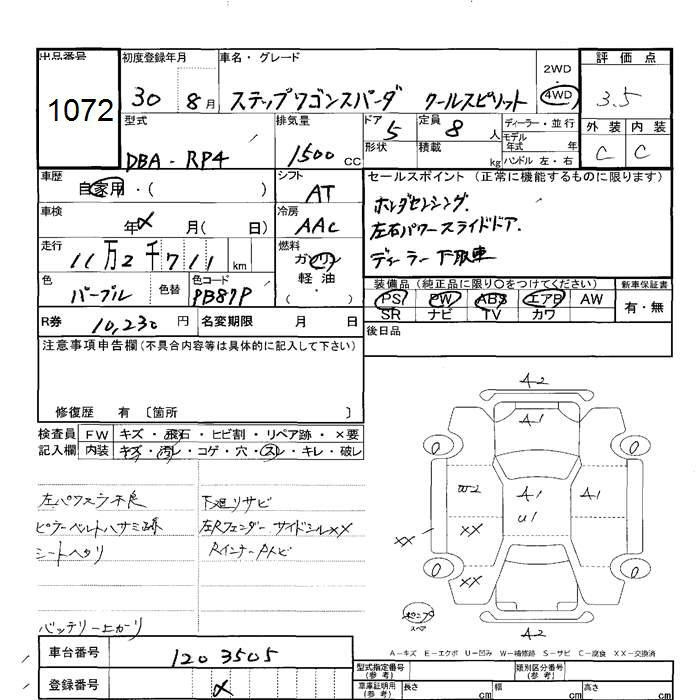 出品番号 初度登録年月 車名・グレード 評価点
1072 30 8月 ステップワゴンスパーダ クールスピリット 2WD 4WD 3.5
型式 排気量 ドア 5 定員 8人 ディーラー・並行 外装 内装
DBA-RP4 1500cc 形状 積載 kg モデル年式 年 C C
ハンドル 左・右
車歴 シフト セールスポイント(正常に機能するものに限ります)
自家用・( ) AT ホンダセンシング.
車検 冷房 左右パワースライドドア.
年 月( 日) AAC ディーラー下取車
走行 燃料
11万2千711km ガソリン
軽油
色 色替 色コード 装備品(純正品に限り○をつけてください) 新車保証書
パープル PB87P PS PW ABS エアB AW 有・無
SR ナビ TV カワ
R券 10,230円 名変期限 月 日 後日品
注意事項申告欄(不具合内容等は具体的に記入して下さい)
修復歴 有 〔箇所 〕
検査員 FW キズ・飛石・ヒビ割・リペア跡・×要
記入欄 内装 キズ・汚レ・コゲ・穴・スレ・キレ・破レ
左パワスラ不良 下廻リサビ
ピラーベルトハサミ跡 左Rフェンダーサイドシルxx
シートヘタリ RインナーAトビ
バッテリー上がり
A2
A1
0 0
W2 A1 A1
U1
XX XX
XX
0 0
スペア
A2
A-キズ E-エクボ U-凹み W-補修跡 S-サビ C-腐食 XX-交換済
車台番号 1203505
登録番号
型式指定番号(参考) 類別区分番号(参考)
車庫証明用(参考) 長さ cm 幅 cm 高さ cm